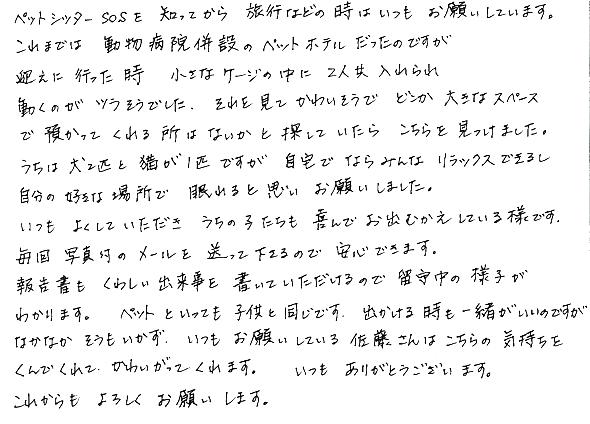 ペットシッターSOSを 知ってから 旅行などの時はいつも お願いしています。
これまでは 動物病院併設のペットホテルだったのですが
迎えに行った時 小さなケージの中に 2人共 入れられ
動くのが ツラそうでした。それを見て かわいそうで どこか 大きなスペース
で 預かって くれる 所は ないかと 探していたら こちらを見つけました。
うちは犬2匹と 猫が1匹ですが 自宅で ならみんな リラックスできるし
自分の 好きな 場所で 眠れると思い お願いしました。
いつも よくしていただき うちの子たちも 喜んで お出むかえしている様です。
毎回 写真付のメールを 送って下さるので 安心できます。
報告書も くわしい 出来事を 書いていただけるので 留守中の 様子が
わかります。 ペット といっても 子供と同じです。出かける時も一緒がいいのですが
なかなか そうもいかず、いつも お願いしている 佐藤さんはこちらの 気持ちを
くんでくれて、かわいがってくれます。 いつも ありがとうございます。
これからも よろしく お願いします。